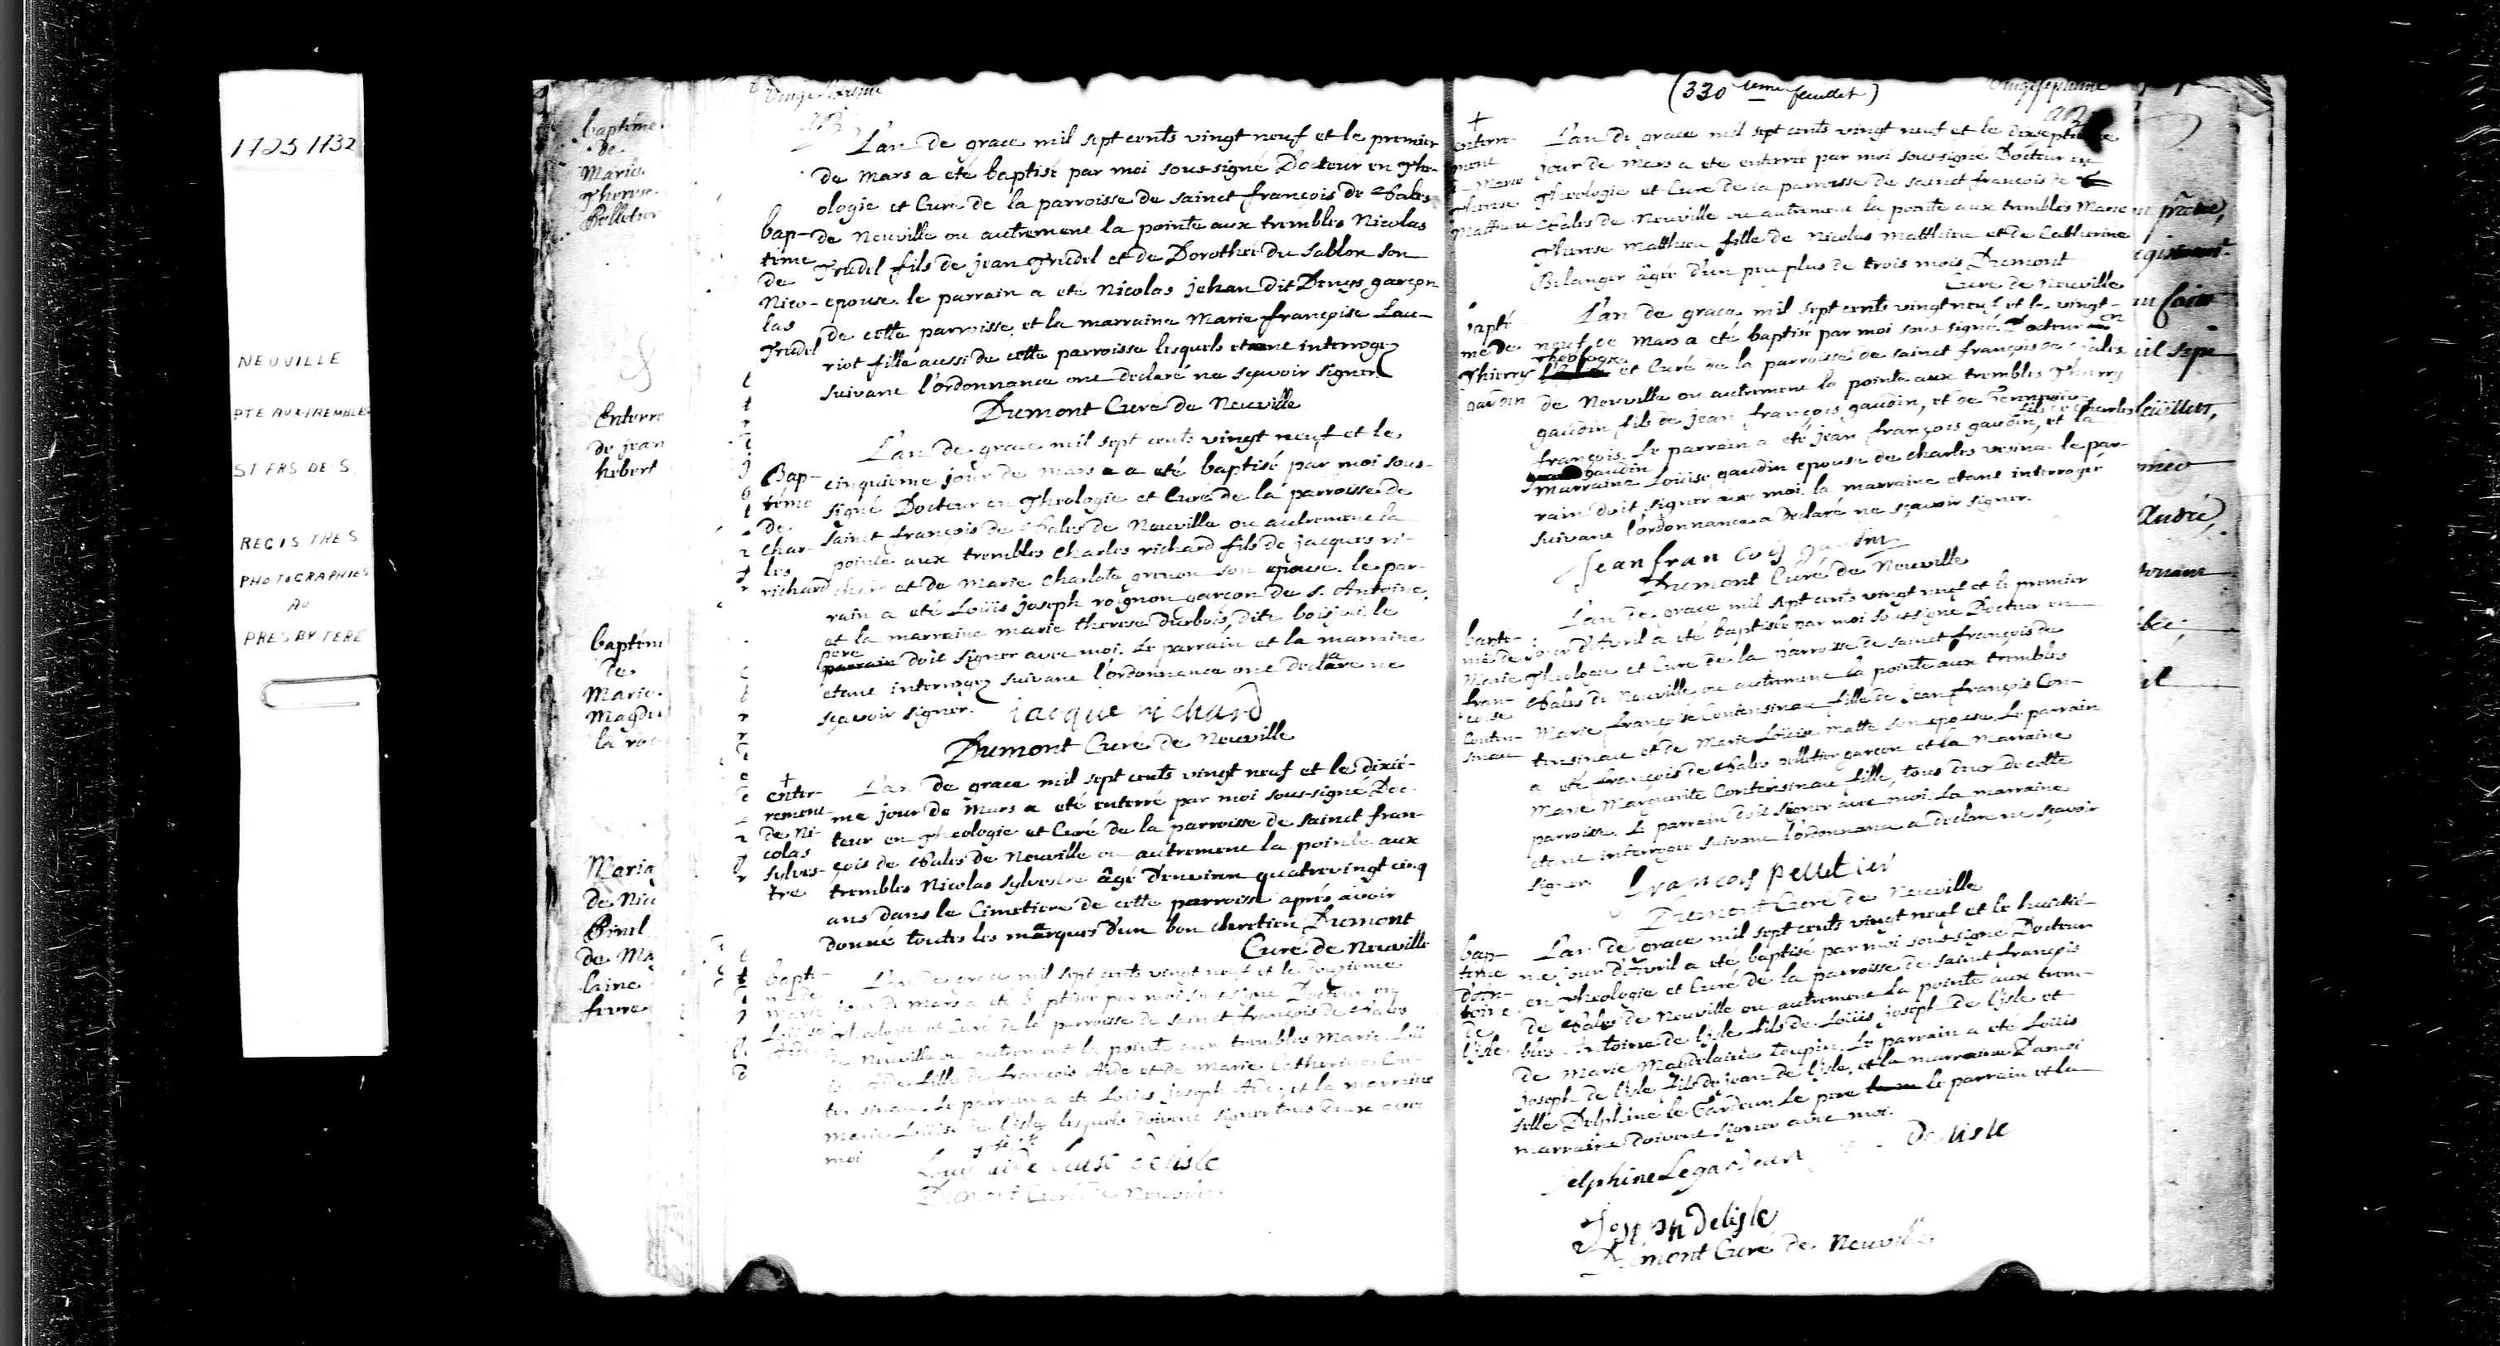 1725 1732
NEUVILLE
PTE AUX TREMBLES
ST FRS DE S
REGISTRES
PHOTOGRAPHIES
AU
PRESBYTERE
baptême
de
Marie
Therese
Pelletier
Enterre
de jean
hebert
baptem
de
Marie
Magde
la ro
Maria
de Nic
Pinel
de Mag
laine
L'an de grace mil sept cents vingt neuf et le premier
de Mars a eté baptisé par moi sous-signé Docteur en The-
ologie et Curé de la parroisse de sainct françois de Sales
de Neuville ou autrement la pointe aux trembles Nicolas
Trudel fils de jean Trudel et de Dorothée du Sablon son
epouse. le parrain a eté Nicolas jehan dit Denys garçon
de cette parroisse, et la marraine Marie françoise Lau-
riot fille aussi de cette parroisse lesquels etant interrogez
suivant l'ordonnance ont declaré ne sçavoir signer.
Dumont Curé de Neuville
bap-
tême
de
Nico-
las
Trudel
L'an de grace mil sept cents vingt neuf et le
cinquieme jour de mars a eté baptisé par moi sous-
signé Docteur en Theologie et Curé de la parroisse de
sainct françois de Sales de Neuville ou autrement la
pointe aux trembles Charles richard fils de jacques ri-
chard et de Marie Charlote grenon son epouse. le par-
rain a eté Loüis joseph rognon garçon de s. Antoine,
et la marraine marie therese Dubois, dite bois joli. le
pere
parrain doit signer avec moi. Le parrain et la marraine
etant interrogez suivant l'ordonnance ont declaré ne
sçavoir signer. jacque richard
Dumont Curé de Neuville
Bap-
tême
de
Char-
les
richard
L'an de grace mil sept cents vingt neuf et le dixié-
me jour de Mars a eté enterré par moi sous-signé Doc-
teur en Theologie et Curé de la parroisse de Sainct fran-
çois de Sales de Neuville ou autrement la pointe aux
trembles Nicolas Sylvestre âgé d'environ quatre vingt cinq
ans dans le Cimetiere de cette parroisse aprés avoir
donné toutes les marques d'un bon chretien Dumont
Curé de Neuville
+
enter-
rement
de Ni-
colas
Sylves-
tre
L'an de grace mil sept cents vingt neuf et le
jour de Mars a eté baptisée par moi sous-signé Docteur en
Theologie et Curé de la parroisse de Sainct françois de Sales
de Neuville ou autrement la pointe aux trembles Marie Loü-
ise Aide fille de françois Aide et de Marie Catherine Con-
tensineau. Le parrain a eté Loüis joseph Aide, et la marraine
Marie Loüise de l'isle, lesquels doivent signer tous deux avec
moi
Louise delisle
Dumont Curé de Neuville
bapte-
me de
Marie
Loüise
Aide
(330 ieme feuillet)
L'an de grace mil sept cents vingt neuf et le dixseptieme
jour de Mars a eté enterrée par moi sous-signé Docteur en
Theologie et Curé de la parroisse de sainct françois de
Sales de Neuville ou autrement la pointe aux trembles Marie
Therese Matthieu fille de Nicolas Matthieu et de Catherine
Belanger âgée d'un peu plus de trois mois Dumont
Curé de Neuville
+
enterre-
ment
Marie
Therese
Matthieu
L'an de grace mil sept cents vingt neuf et le vingt-
neuf de Mars a eté baptisé par moi sous-signé Docteur en
Theologie et Curé de la parroisse de sainct françois de Sales
de Neuville ou autrement la pointe aux trembles Thierry
gaudin fils de jean françois gaudin, et de
françois. Le parrain a eté jean françois gaudin, fils de Charles
gaudin et la
marraine Loüise gaudin epouse de charles vesina. le par-
rain doit signer avec moi. la marraine etant interrogée
suivant l'ordonnance a declaré ne sçavoir signer.
jean fran cois gaudin
Dumont Curé de Neuville
bapte
me de
Thierry
gaudin
L'an de grace mil sept cents vingt neuf et le premier
jour d'Avril a eté baptisée par moi sous-signé Docteur en
Theologie et Curé de la parroisse de sainct françois de
Sales de Neuville ou autrement la pointe aux trembles
Marie françoise Contensineau fille de jean françois Con-
tensineau et de Marie Loüise Matte son epouse. Le parrain
a eté françois de Sales pelletier garçon et la Marraine
Marie Marguerite Contensineau fille, tous deux de cette
parroisse. Le parrain doit signer avec moi. La marraine
etant interrogée suivant l'ordonnance a declaré ne sçavoir
signer. françois pelletier
Dumont Curé de Neuville
bapte-
me de
Marie
fran-
coise
Conten-
sineau
L'an de grace mil sept cents vingt neuf et le huitié-
me jour d'Avril a eté baptisé par moi sous-signé Docteur
en Theologie et Curé de la parroisse de sainct françois
de Sales de Neuville ou autrement la pointe aux trem-
bles Antoine de l'isle fils de Loüis joseph de l'isle et
de Marie Magdelaine toupin. Le parrain a eté Loüis
joseph de l'isle fils de jean de l'isle, et la marraine Damoi
selle Delphine le Gardeur. Le pere le parrain et la
marraine doivent signer avec moi.
Delisle
delphine Legardeur
Joseph delisle
Dumont Curé de Neuville
bap-
teme
d'An-
toine
de
l'isle